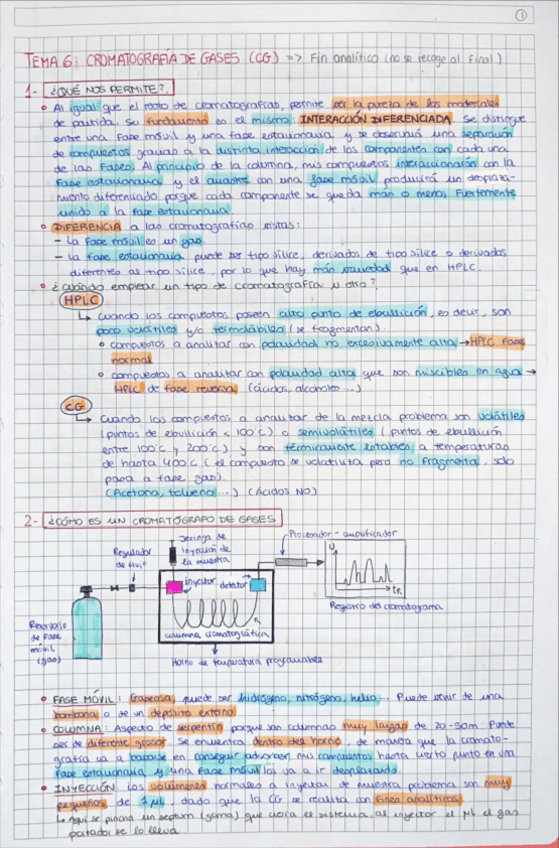 1
TEMA 6: CROMATOGRAFÍA DE GASES (CG) => Fin analítico (no se recoge al final)
1- ¿QUÉ NOS PERMITE?
• Al igual que el resto de cromatografías, permite ver la pureza de los materiales
de partida. Su fundamento es el mismo: INTERACCIÓN DIFERENCIADA. Se distingue
entre una fase móvil y una fase estacionaria, y se observará una separación
de compuestos gracias a la distinta interacción de los componentes con cada una
de las fases. Al principio de la columna, mis compuestos interaccionarán con la
fase estacionaria y el arrastre con una fase móvil producirá un desplaza-
miento diferenciado porque cada componente se queda más o menos fuertemente
unido a la fase estacionaria.
• DIFERENCIA a las cromatografías vistas:
- La fase móvil es un gas.
- La fase estacionaria puede ser tipo sílice, derivados de tipo sílice o derivados
diferentes al tipo sílice, por lo que hay más variedad que en HPLC.
• ¿Cuándo emplear un tipo de cromatografía u otro?
HPLC
↳ Cuando los compuestos poseen alto punto de ebullición, es decir, son
poco volátiles y/o termolábiles (se fragmentan).
• compuestos a analizar con polaridad no excesivamente alta → HPLC fase
normal
• compuestos a analizar con polaridad alta que son miscibles en agua →
HPLC de fase reversa (ácidos, alcoholes...)
CG
↳ Cuando los compuestos a analizar de la mezcla problema son volátiles
(puntos de ebullición < 100°C) o semivolátiles (puntos de ebullición
entre 100°C y 200°C) y son térmicamente estables a temperaturas
de hasta 400°C (el compuesto se volatiliza pero no fragmenta, solo
pasa a fase gas).
(Acetona, tolueno...) (Ácidos NO)
2- ¿CÓMO ES UN CROMATÓGRAFO DE GASES
Jeringa de
inyección de
la muestra
Procesador-amplificador
Regulador
de flujo
inyector
detector
U
tR
Registro del cromatograma
columna cromatográfica
Reservorio
de fase
móvil
(gas)
Horno de temperatura programable
• FASE MÓVIL: Gaseosa, puede ser hidrógeno, nitrógeno, helio... Puede venir de una
bombona o de un depósito externo
• COLUMNA: Aspecto de serpentín porque son columnas muy largas de 20-50m. Puede
ser de diferente grosor. Se encuentra dentro del horno, de manera que la cromato-
grafía va a basarse en conseguir adsorber mis compuestos hasta cierto punto en una
fase estacionaria, y una fase móvil los va a ir desplazando.
• INYECCIÓN: Los volúmenes normales a inyectar de muestra problema son muy
pequeños, de 1 µL, dado que la CG se realiza con fines analíticos.
↳ Aquí se pincha un septum (goma) que cierra el sistema, al inyectar el µL el gas
portador se lo lleva.